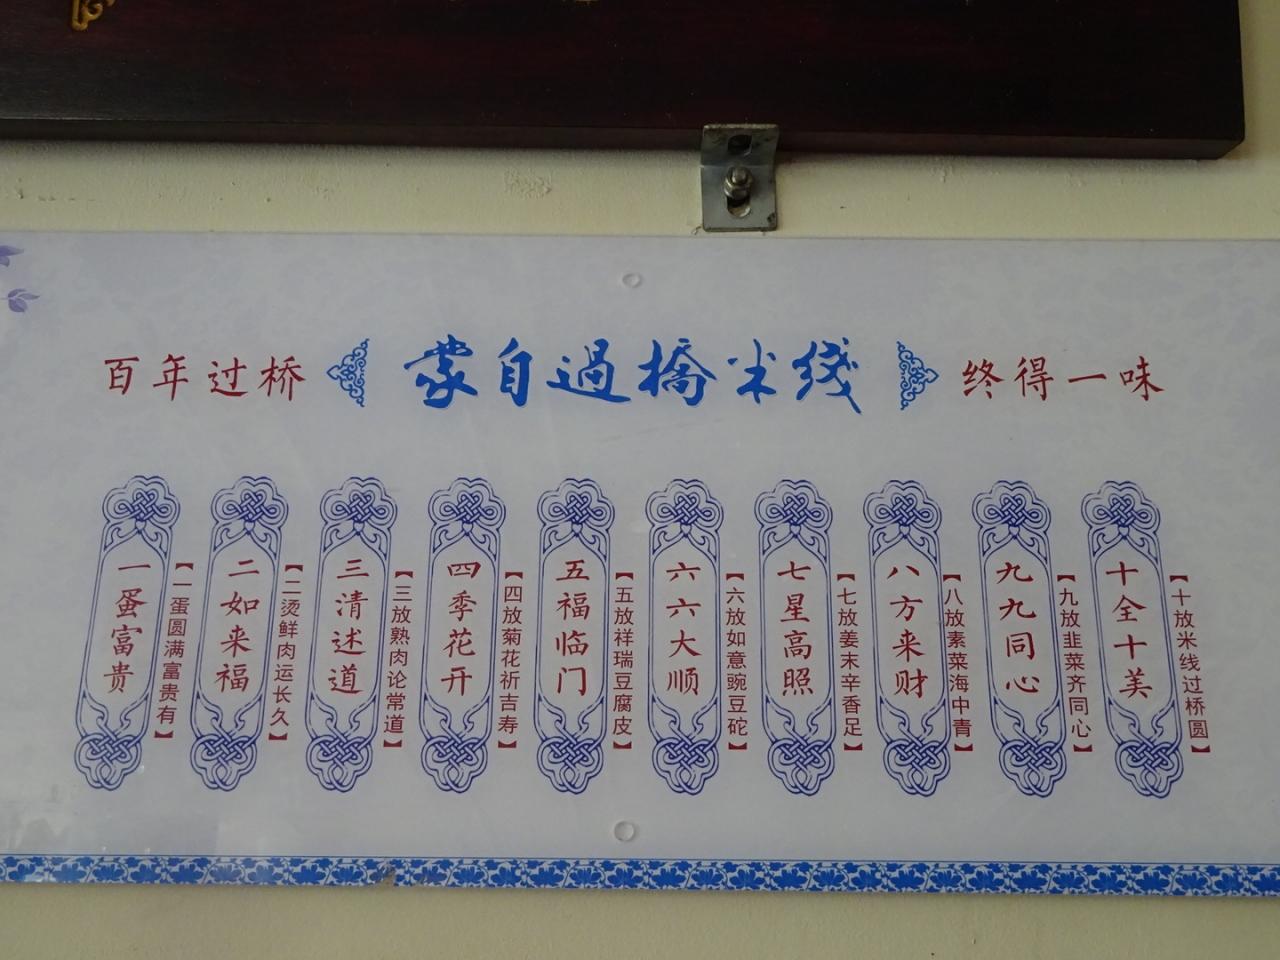 百年过桥 蒙自過橋米线 终得一味
一蛋富贵
【一蛋圆满富贵有】
二如来福
【二烫鲜肉运长久】
三清述道
【三放熟肉论常道】
四季花开
【四放菊花祈吉寿】
五福临门
【五放祥瑞豆腐皮】
六六大顺
【六放如意豌豆砣】
七星高照
【七放姜末辛香足】
八方来财
【八放素菜海中青】
九九同心
【九放韭菜齐同心】
十全十美
【十放米线过桥圆】